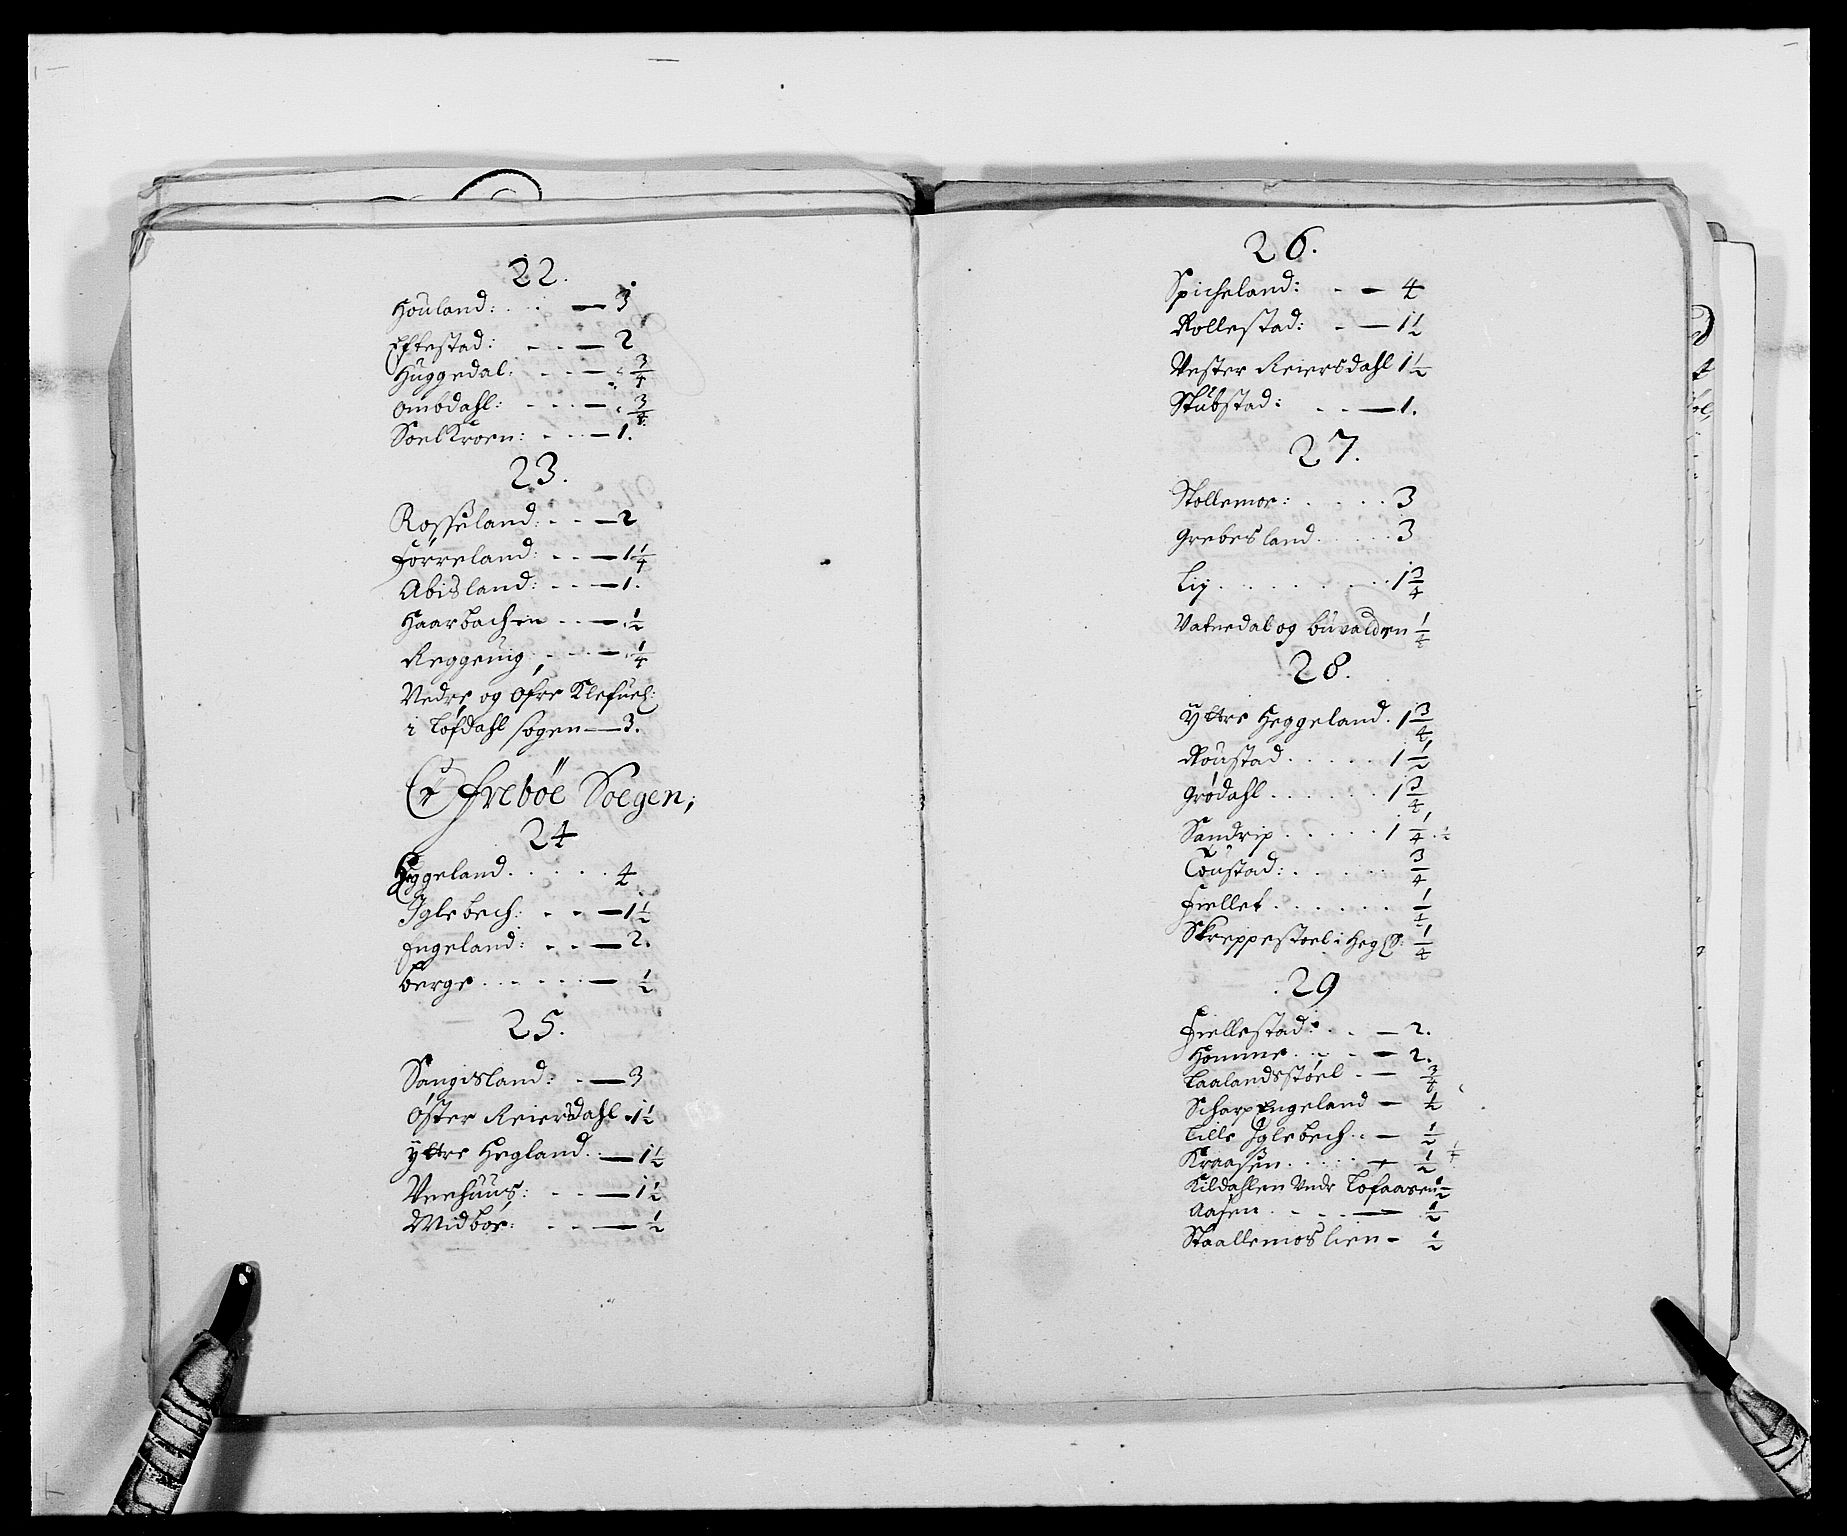 22.
Houland: . . — 3
Eftestad: - - — 2
Huggedal: - - - — 3/4
Ombdahl: - - - — 3/4
Soelkroen: - - - — 1.
23.
Rosseland: - - — 2
Førreland: - - — 1 1/4
Abisland: - - — 1.
Haarbachen - - — 1/2
Reggeuig - - — 1/4
Nedre og Øfre Klefuel:
i Løfdahl sogen — 3.
Øfrebøe Soegen;
24
Heggeland . . . . . 4
Iglebech: - - — 1 1/2
Engeland: - - — 2.
Berge . . . . . — 1/2
25.
Sangisland: - — 3
Øster Reiersdahl - 1 1/2
Yttre Hegland . — 1 1/2
Veehuus: - - — 1 1/2
Midboe: - - — 1/2
26.
Spicheland: - — 4
Rollestad: - — 1 1/2
Vester Reiersdahl 1 1/2
Stubstad: - - — 1.
27.
Stollemoe: . . . . . 3
Grebesland . . . . . 3
Lij . . . . . . . . 1 3/4
Vatnedal og buvalden 1/4
28.
Yttre Heggeland . 1 3/4
Røustad . . . . . 1 1/2
Grødahl . . . . . . 1 3/4
Sandrip . . . . . 1 1/4 . 1/2
Tøustad: . . . . . 3/4
Fiellet . . . . . . 1/4
Skreppestoel i Hegl S: 1/4
29
Fiellestad: . . — 2.
Homme . . - — 2.
Laalandsstøel - — 3/4
Scharpengeland — 1/2
Lille Iglebech . . — 1/2
Kraasen . . . . . — 1/2 1/4
Kildahlen Nedr Løfaasen 1/2
Aasen . - - - — 1/2
Staallemoslien - 1/2